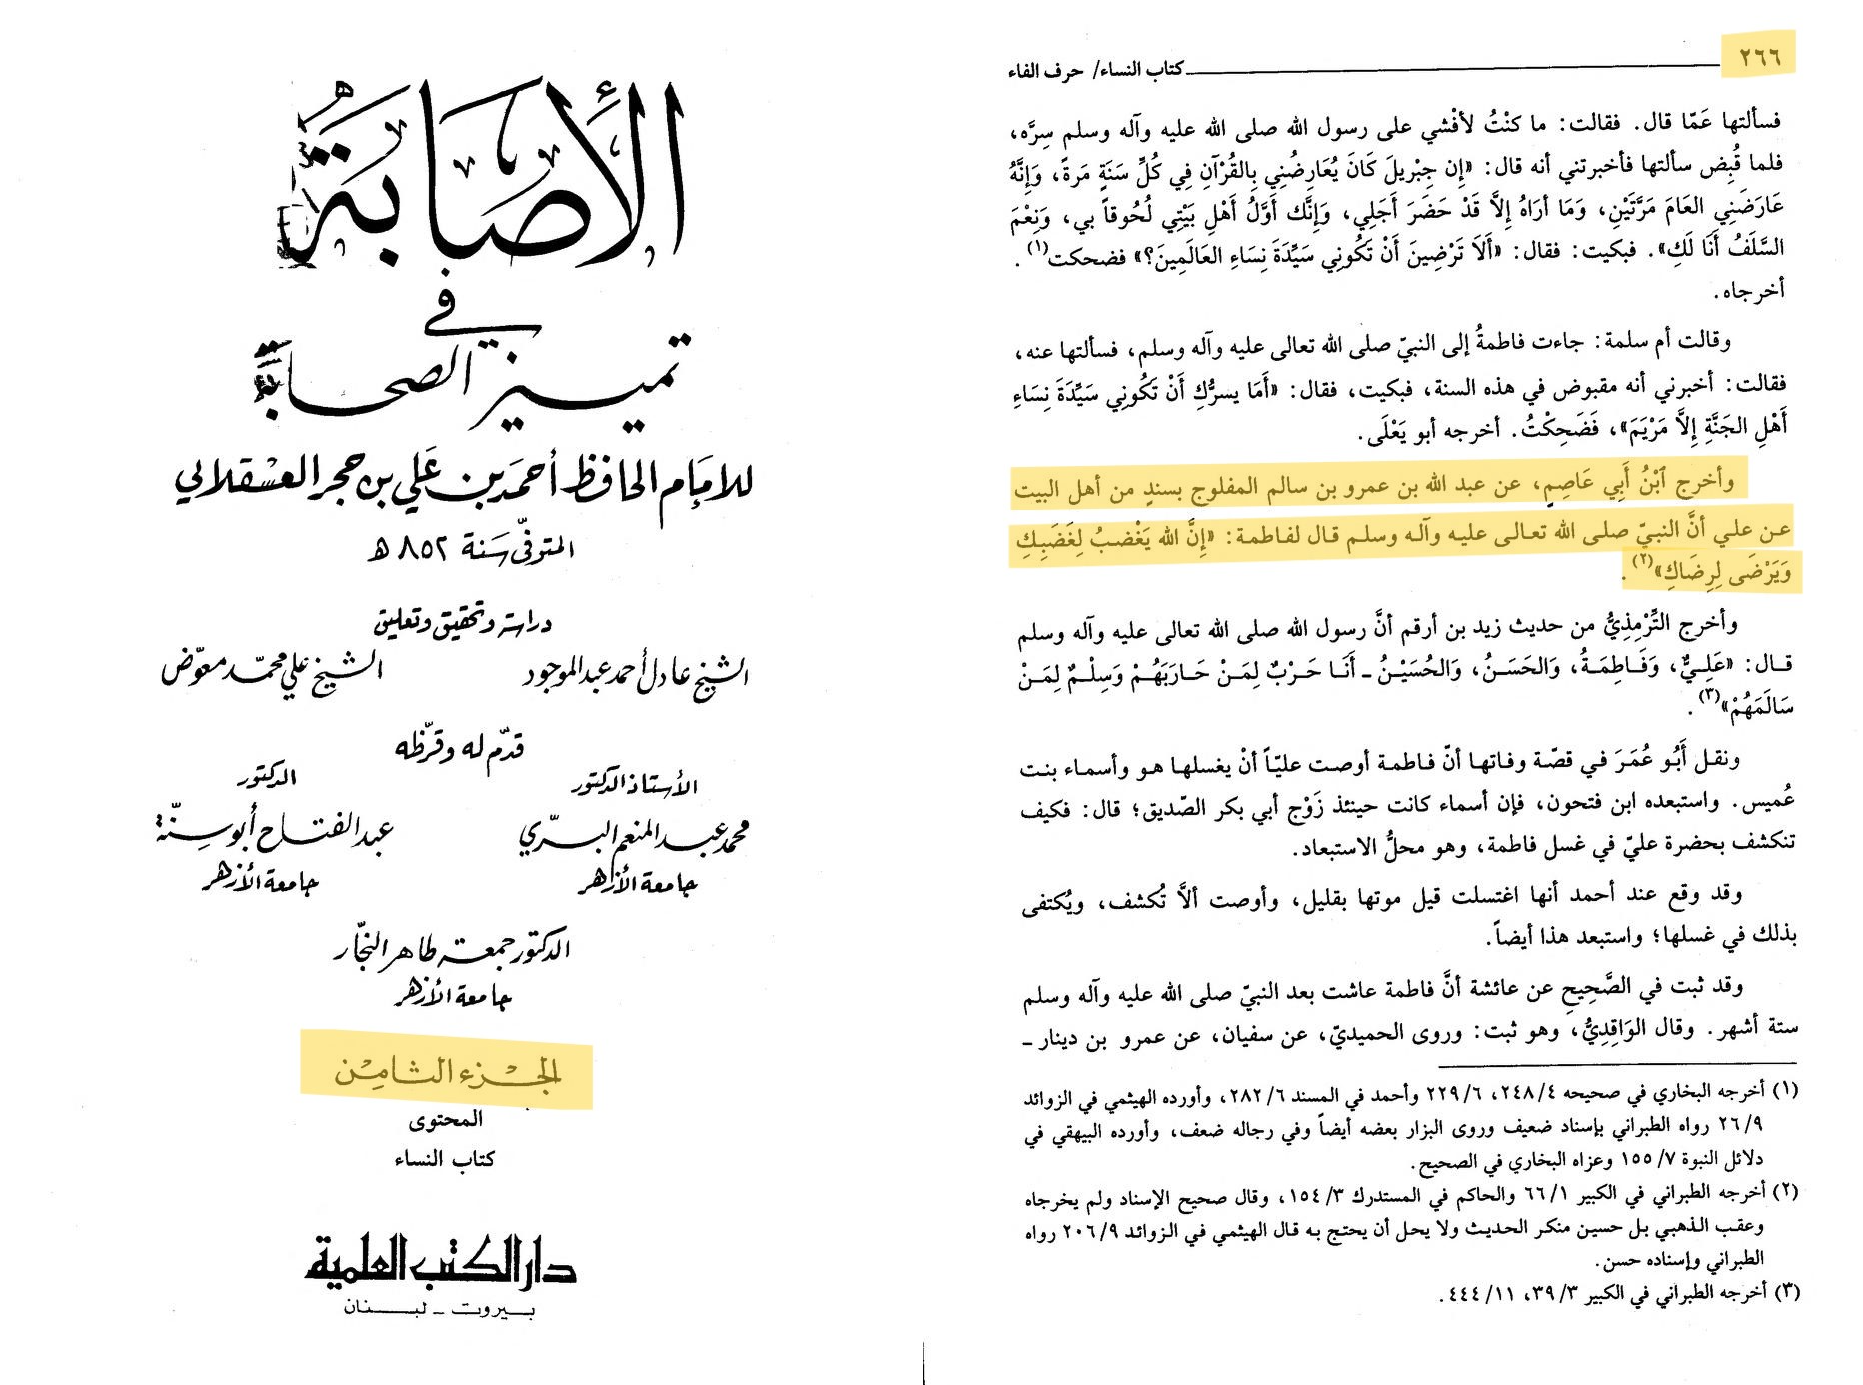 الأصابة
في
تمييز الصحابة
للإمام الحافظ أحمد بن علي بن حجر العسقلاني
المتوفى سنة ٨٥٢ هـ
دراسة وتحقيق وتعليق
الشيخ عادل أحمد عبد الموجود الشيخ علي محمد معوض
قدم له وقرظه
الأستاذ الدكتور الدكتور
محمد عبد المنعم البري عبد الفتاح أبو سنة
جامعة الأزهر جامعة الأزهر
الدكتور جمعة طاهر النجار
جامعة الأزهر
الجزء الثامن
المحتوى
كتاب النساء
دار الكتب العلمية
بيروت ـ لبنان
٢٦٦ كتاب النساء/ حرف الفاء
فسألتها عَمّا قال. فقالت: ما كنْتُ لأفْشي على رسول الله صلى الله عليه وآله وسلم سِرَّه،
فلما قُبِض سألتها فأخبرتني أنه قال: «إن جِبْريلَ كَانَ يُعَارِضُنِي بِالقُرْآنِ فِي كُلِّ سَنَةٍ مَرةً، وَإِنَّهُ
عَارَضَنِي العَامَ مَرَّتَيْنِ، وَمَا أرَاهُ إلاَّ قَدْ حَضَرَ أَجَلِي، وَإنَّك أوَّلُ أَهْلِ بَيْتِي لُحُوقاً بي، وَنِعْمَ
السَّلَفُ أَنَا لَكِ». فبكيت: فقال: «أَلاَ تَرْضِينَ أَنْ تَكُونِي سَيِّدَةَ نِسَاءِ العَالَمِينَ؟» فضحكت(١).
أخرجاه.
وقالت أم سلمة: جاءت فاطمةُ إلى النبيّ صلى الله تعالى عليه وآله وسلم، فسألتها عنه،
فقالت: أخبرني أنه مقبوض في هذه السنة، فبكيت، فقال: «أَمَا يسرُّكِ أَنْ تَكُونِي سَيِّدَةَ نِسَاءِ
أَهْلِ الجَنَّةِ إِلاَّ مَرْيَمَ»، فَضَحِكْتُ. أخرجه أبو يَعْلَى.
وأخرج ٱبْنُ أَبِي عَاصِمٍ، عن عبد الله بن عمرو بن سالم المفلوج بسندٍ من أهل البيت
عن علي أنَّ النبيّ صلى الله تعالى عليه وآله وسلم قال لفاطمة: «إِنَّ الله يَغْضبُ لِغَضَبِكِ
وَيَرْضَى لِرِضَاكِ»(٢).
وأخرج التِّرْمِذِيُّ من حديث زيد بن أرقم أنَّ رسول الله صلى الله تعالى عليه وآله وسلم
قال: «عَلِيٌّ، وَفَاطِمَةُ، وَالحَسَنُ، وَالحُسَيْنُ ـ أَنَا حَرْبٌ لِمَنْ حَارَبَهُمْ وَسِلْمٌ لِمَنْ
سَالَمَهُمْ»(٣).
ونقل أَبُو عُمَرَ في قصّة وفاتها أنّ فاطمة أوصت عليّاً أنْ يغسلها هو وأسماء بنت
عُميس. واستبعده ابن فتحون، فإن أسماء كانت حينئذ زَوْج أبي بكر الصّديق؛ قال: فكيف
تنكشف بحضرة عليّ في غسل فاطمة، وهو محلُّ الاستبعاد.
وقد وقع عند أحمد أنها اغتسلت قيل موتها بقليل، وأوصت ألاَّ تُكشف، ويُكتفى
بذلك في غسلها؛ واستبعد هذا أيضاً.
وقد ثبت في الصَّحِيحِ عن عائشة أنَّ فاطمة عاشت بعد النبيّ صلى الله عليه وآله وسلم
ستة أشهر. وقال الوَاقِدِيُّ، وهو ثبت: وروى الحميديّ، عن سفيان، عن عمرو بن دينار ـ
(١) أخرجه البخاري في صحيحه ٤/ ٢٤٨، ٦/ ٢٢٩ وأحمد في المسند ٦/ ٢٨٢، وأورده الهيثمي في الزوائد
٩/ ٢٦ رواه الطبراني بإسناد ضعيف وروى البزار بعضه أيضاً وفي رجاله ضعف، وأورده البيهقي في
دلائل النبوة ٧/ ١٥٥ وعزاه البخاري في الصحيح.
(٢) أخرجه الطبراني في الكبير ١/ ٦٦ والحاكم في المستدرك ٣/ ١٥٤، وقال صحيح الإسناد ولم يخرجاه
وعقب الذهبي بل حسين منكر الحديث ولا يحل أن يحتج به قال الهيثمي في الزوائد ٩/ ٢٠٦ رواه
الطبراني وإسناده حسن.
(٣) أخرجه الطبراني في الكبير ٣/ ٣٩، ١١/ ٤٤٤.